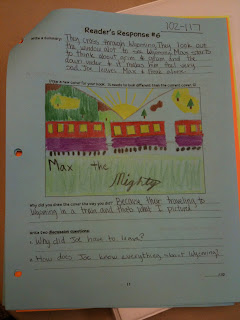 102-117
Reader's Response #6
Write a Summary: They cross through Wyoming. They look out
the window alot to see Wyoming. Max starts
to think about grim & gram and the
down under & it makes him feel very
sad. Joe leaves Max & Freak alone.
Create a new cover for your book. It needs to look different than the current cover.
Max the
Mighty
Why did you draw the cover the way you did? Because their traveling to
Wyoming in a train and thats what I pictured
Write two discussion questions:
Why did Joe have to leave?
How does Joe know everything about Wyoming?
11